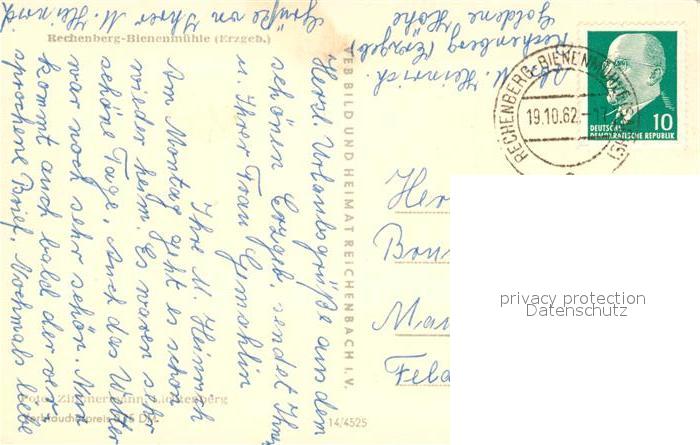 Rechenberg-Bienenmühle (Erzgeb.)
Herzl. Urlaubsgrüße aus dem
schönen Erzgeb. sendet Ihnen
u. Ihrer Frau Gemahlin
Ihre M. Heinrich
Am Montag geht es schon
wieder heim. Es waren sehr
schöne Tage, auch das Wetter
war noch sehr schön. Nun
kommt auch bald der ver-
sprochene Brief. Nochmals liebe
Grüße von Ihrer M. Heinrich
Foto: Zimmermann, Lichtenberg
Verbraucherpreis DM
VEB BILD UND HEIMAT REICHENBACH I. V.
14/4525
Abs. M. Heinrich
Rechenberg (Erzgeb)
Goldene Höhe
RECHENBERG-BIENENMÜHLE
19.10.62.
10
DEUTSCHE
DEMOKRATISCHE REPUBLIK
Her
Mau
Feld
privacy protection
Datenschutz